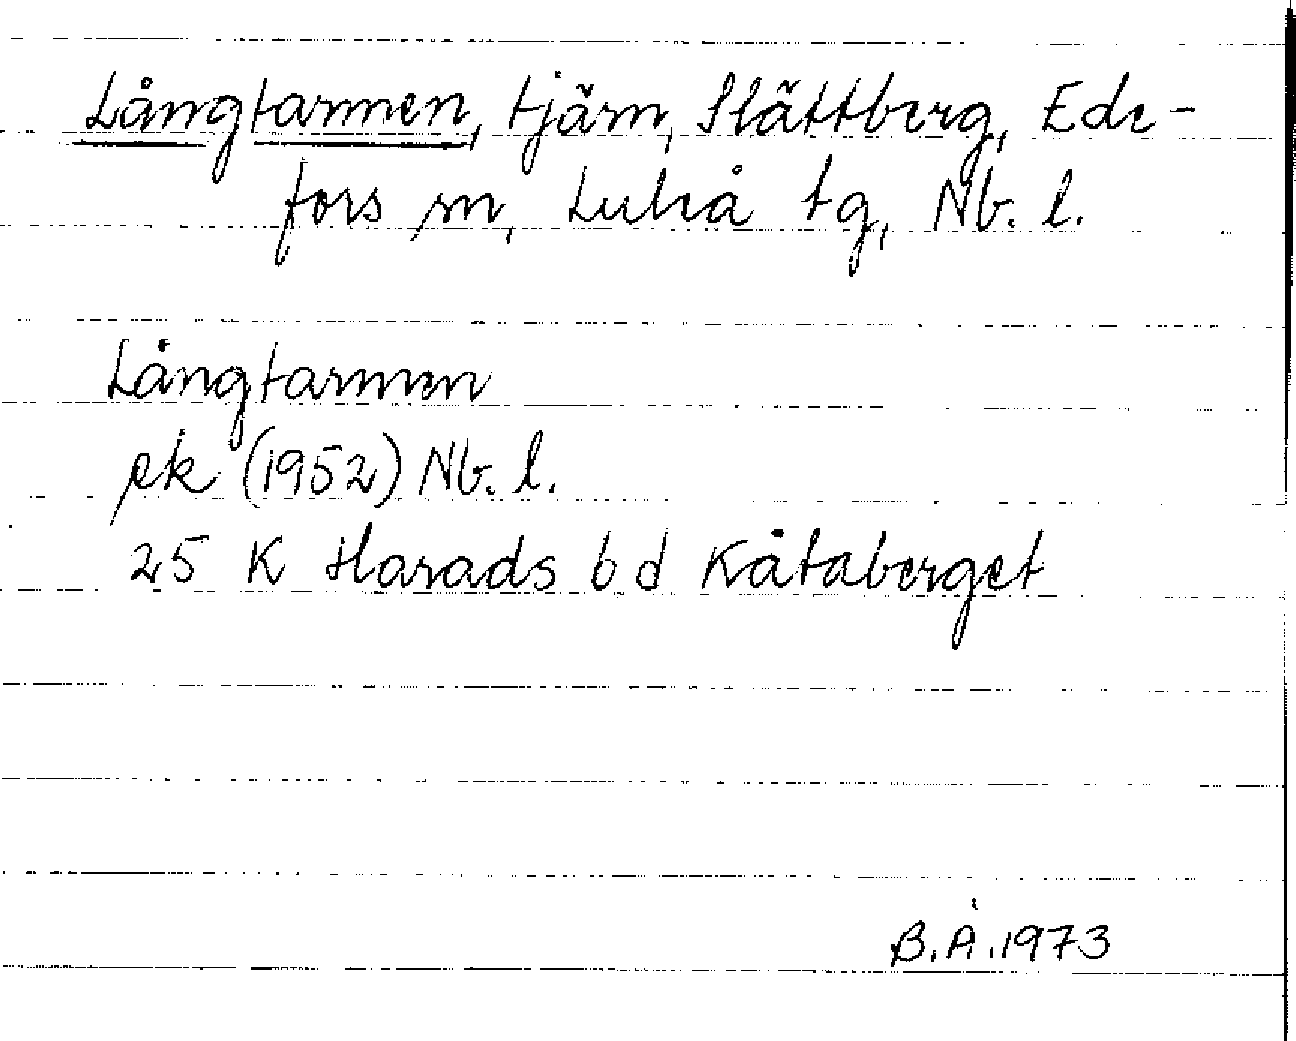 Långtarmen, tjärn, Slättberg, Ede-
fors sn, Luleå tg, Nb. l.
Långtarmen
ek (1952) Nb. l.
25 K Harads b d Kåtaberget
B.Å.1973